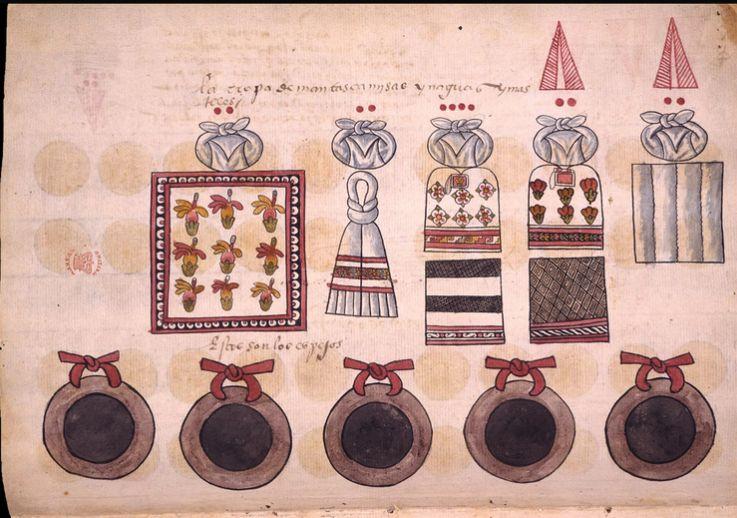 la ropa de mantas camisas y naguas y mas
tecos
Estos son los espejos